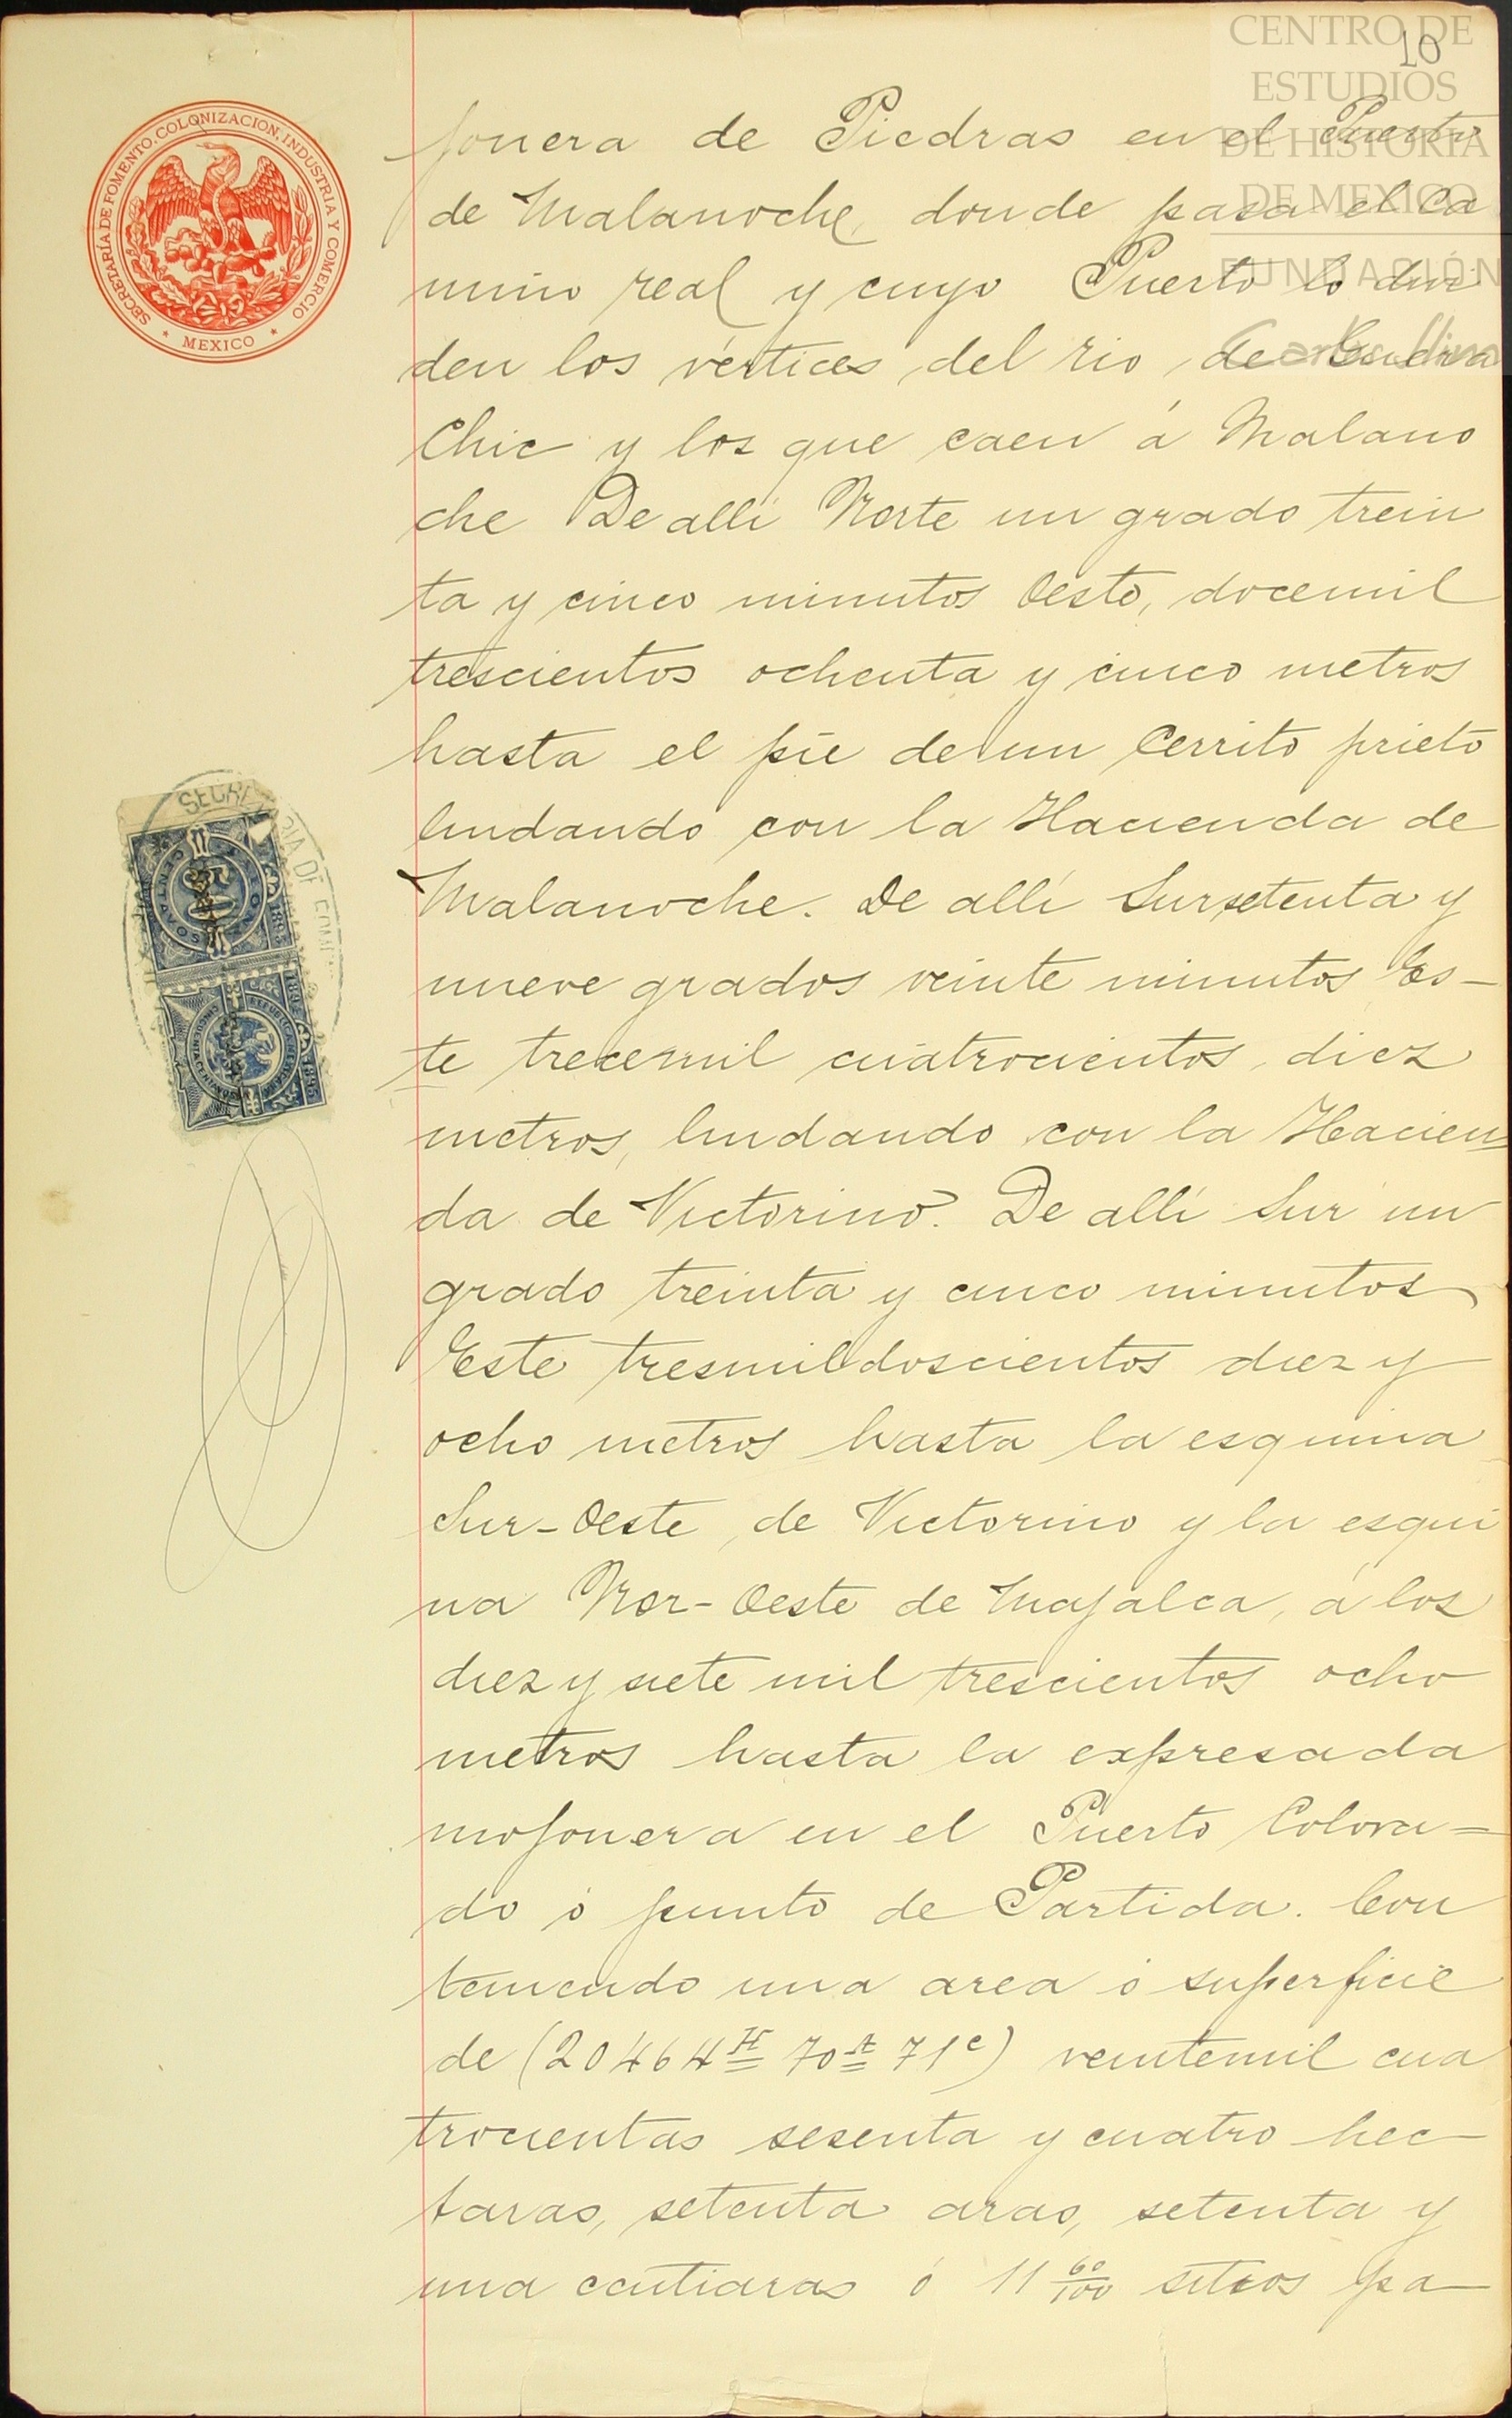 10
CENTRO DE
ESTUDIOS
DE HISTORIA
DE MEXICO
FUNDACIÓN
Carlos Slim
SECRETARÍA DE FOMENTO, COLONIZACION, INDUSTRIA Y COMERCIO
* MEXICO *
jonera de Piedras en el Puerto
de Malanoche, donde pasa el Ca
mino real y cuyo Puerto lo divi
den los vértices del rio de
Chic y los que caen á Malano
che De allí Norte un grado trein
ta y cinco minutos Oeste, docemil
trescientos ochenta y cinco metros
hasta el pié de un Cerrito prieto
lindando con la Hacienda de
Malanoche. De allí Sur setenta y
nueve grados veinte minutos Es-
te trecemil cuatrocientos diez
metros, lindando con la Hacien
da de Victorino. De allí Sur un
grado treinta y cinco minutos
Este tresmil doscientos diez y
ocho metros hasta la esquina
Sur-Oeste de Victorino y la esqui
na Nor-Oeste de Majalca, á los
diez y siete mil trescientos ocho
metros hasta la expresada
mojonera en el Puerto Colora=
do ó punto de Partida. Con
teniendo una area ó superficie
de (20464H 70A 71c) veintemil cua
trocientas sesenta y cuatro hec
taras, setenta aras, setenta y
una centiaras ó 11 60/100 sitios pa
SECRETARIA DE FOM
CENTAVOS
1895
REPUBLICA MEXICANA
CINCUENTA CENTAVOS
1895